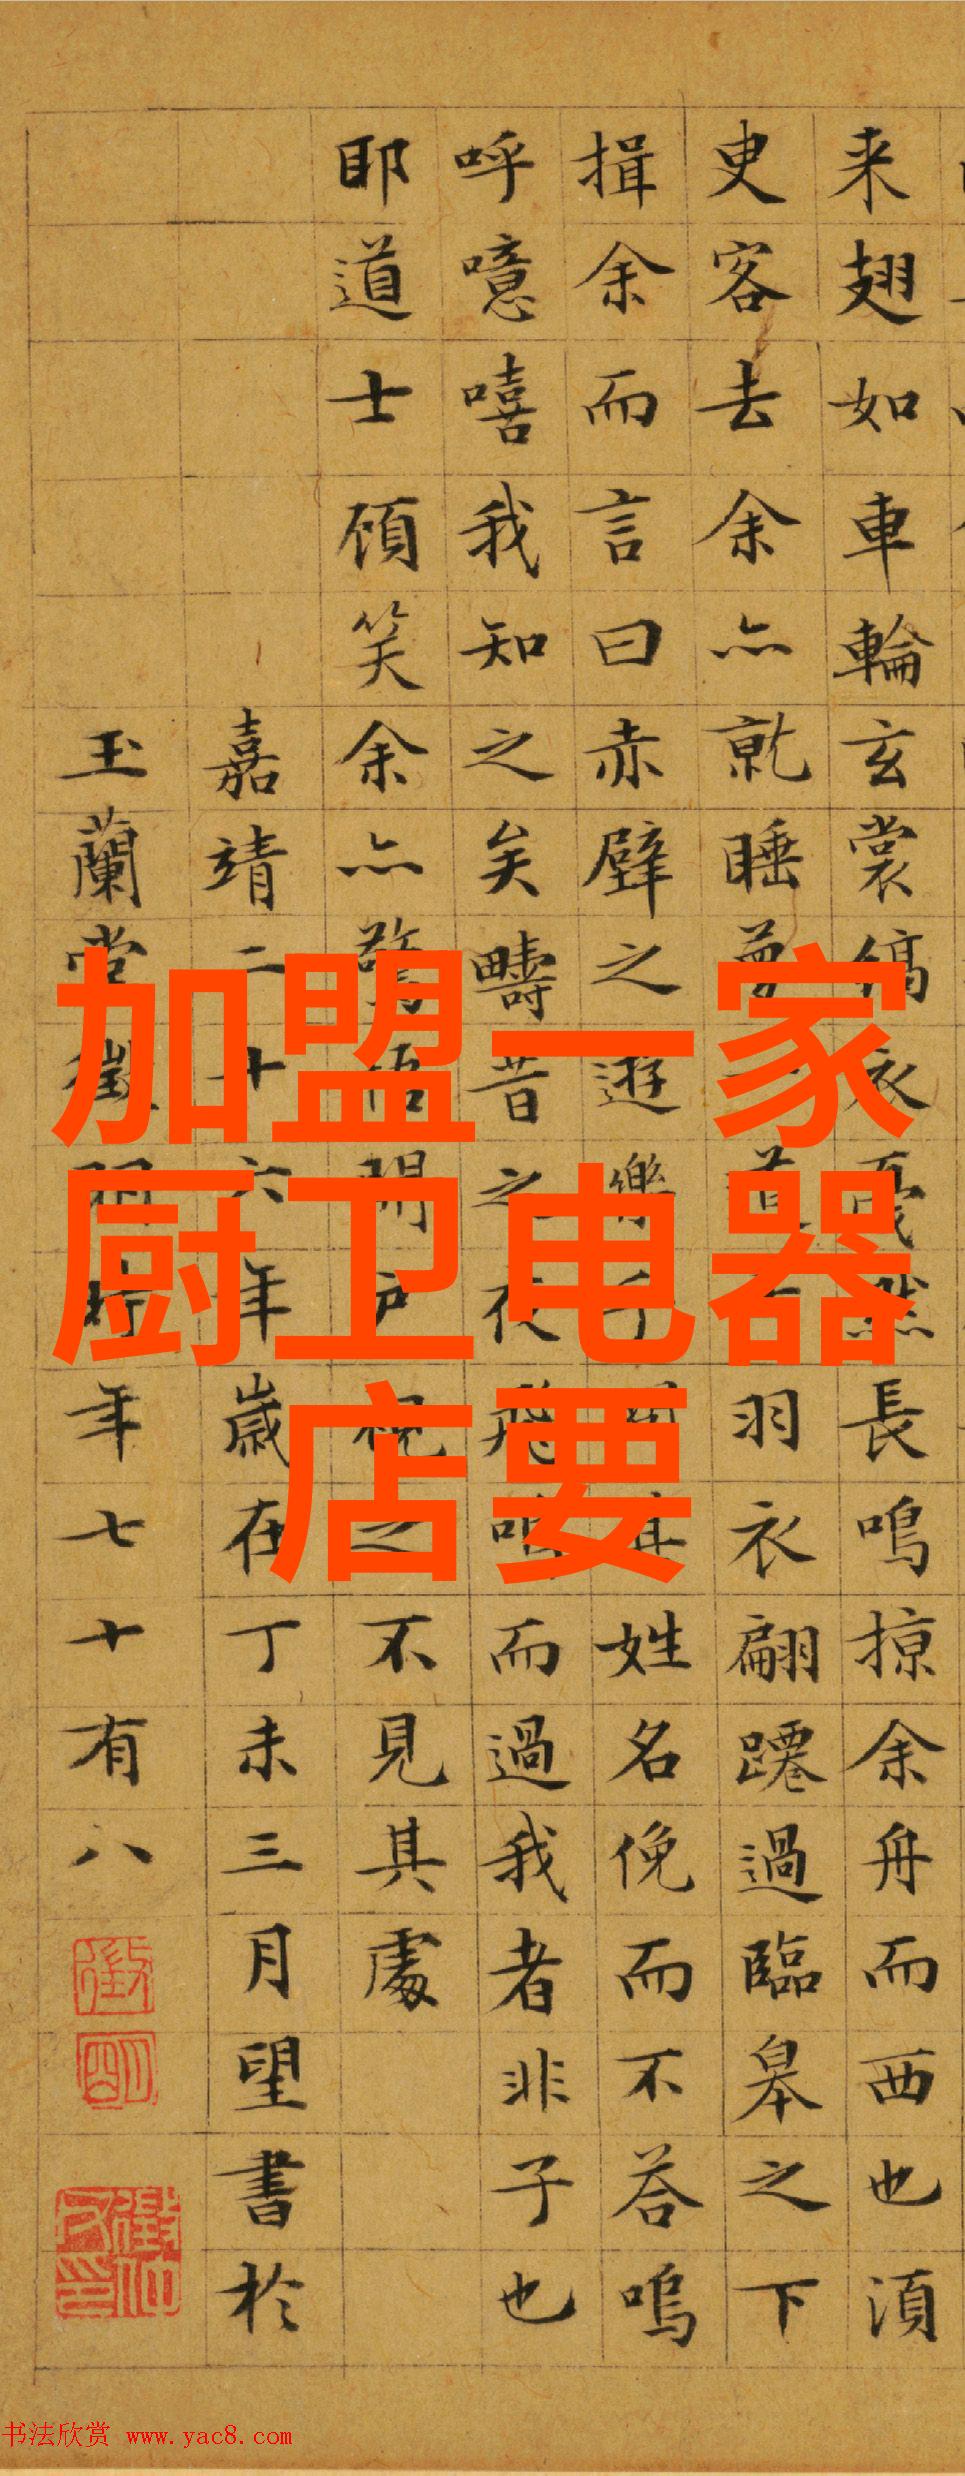 来翅如車輪玄裳縞衣戛然長鳴掠余舟而西也湏
臾客去余亦就睡夢一道士羽衣翩躚過臨皋之下
揖余而言曰赤壁之遊樂乎問其姓名俛而不荅嗚
呼噫嘻我知之矣疇昔之夜飛鳴而過我者非子也
耶道士顧笑余亦驚悟開戶視之不見其處
嘉靖二十六年歲在丁未三月望書於
玉蘭堂徵明時年七十有八
加盟一家
厨卫电器
店要
书法欣赏 www.yac8.com